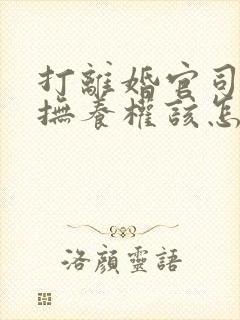 打離婚官司
撫養權該怎
洛顏靈語